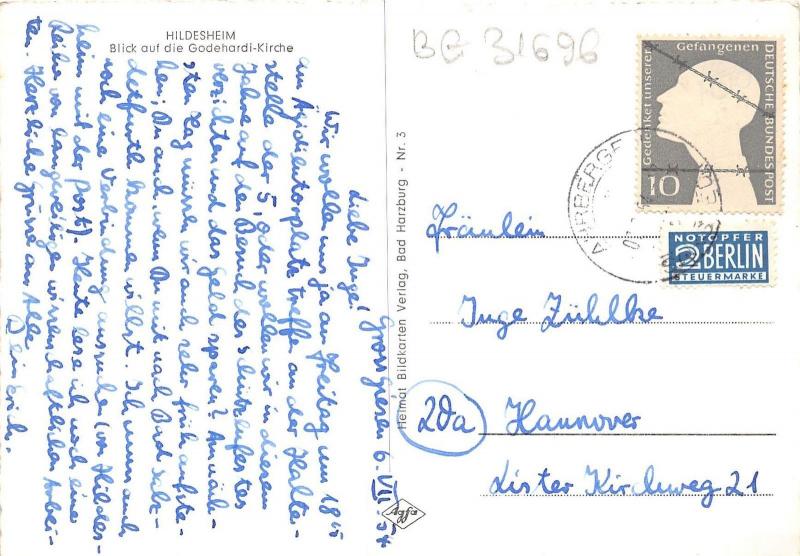 HILDESHEIM
Blick auf die Godehardi-Kirche
BG 31696
Grossgiesen 6. VII. 54
Liebe Inge!
Wir wollen uns ja am Freitag um 18 15
am Ägidientorplatz treffen an der Halte-
stelle der 5, oder wollen wir in diesem
Jahre auf den Besuch des Schützenfestes
verzichten und das Geld sparen? Am näch-
sten Tag müssen wir auch sehr früh aufste-
hen, Du auch, wenn Du mit nach Bad Salz-
detfurth kommen willst. Ich muss auch
noch eine Verbindung aussuchen (von Hildes-
heim mit der Post). Heute lese ich noch eine
Reihe von langweiligen wissenschaftlichen Arbei-
ten. Herzliche Grüsse an Alle
Heimat Bildkarten Verlag, Bad Harzburg - Nr. 3
Agfa
Gedenket unserer Gefangenen
DEUTSCHE BUNDESPOST
10
NOTOPFER
2 BERLIN
STEUERMARKE
Fräulein
Inge Zühlke
20a Hannover
Lister Kirchweg 21